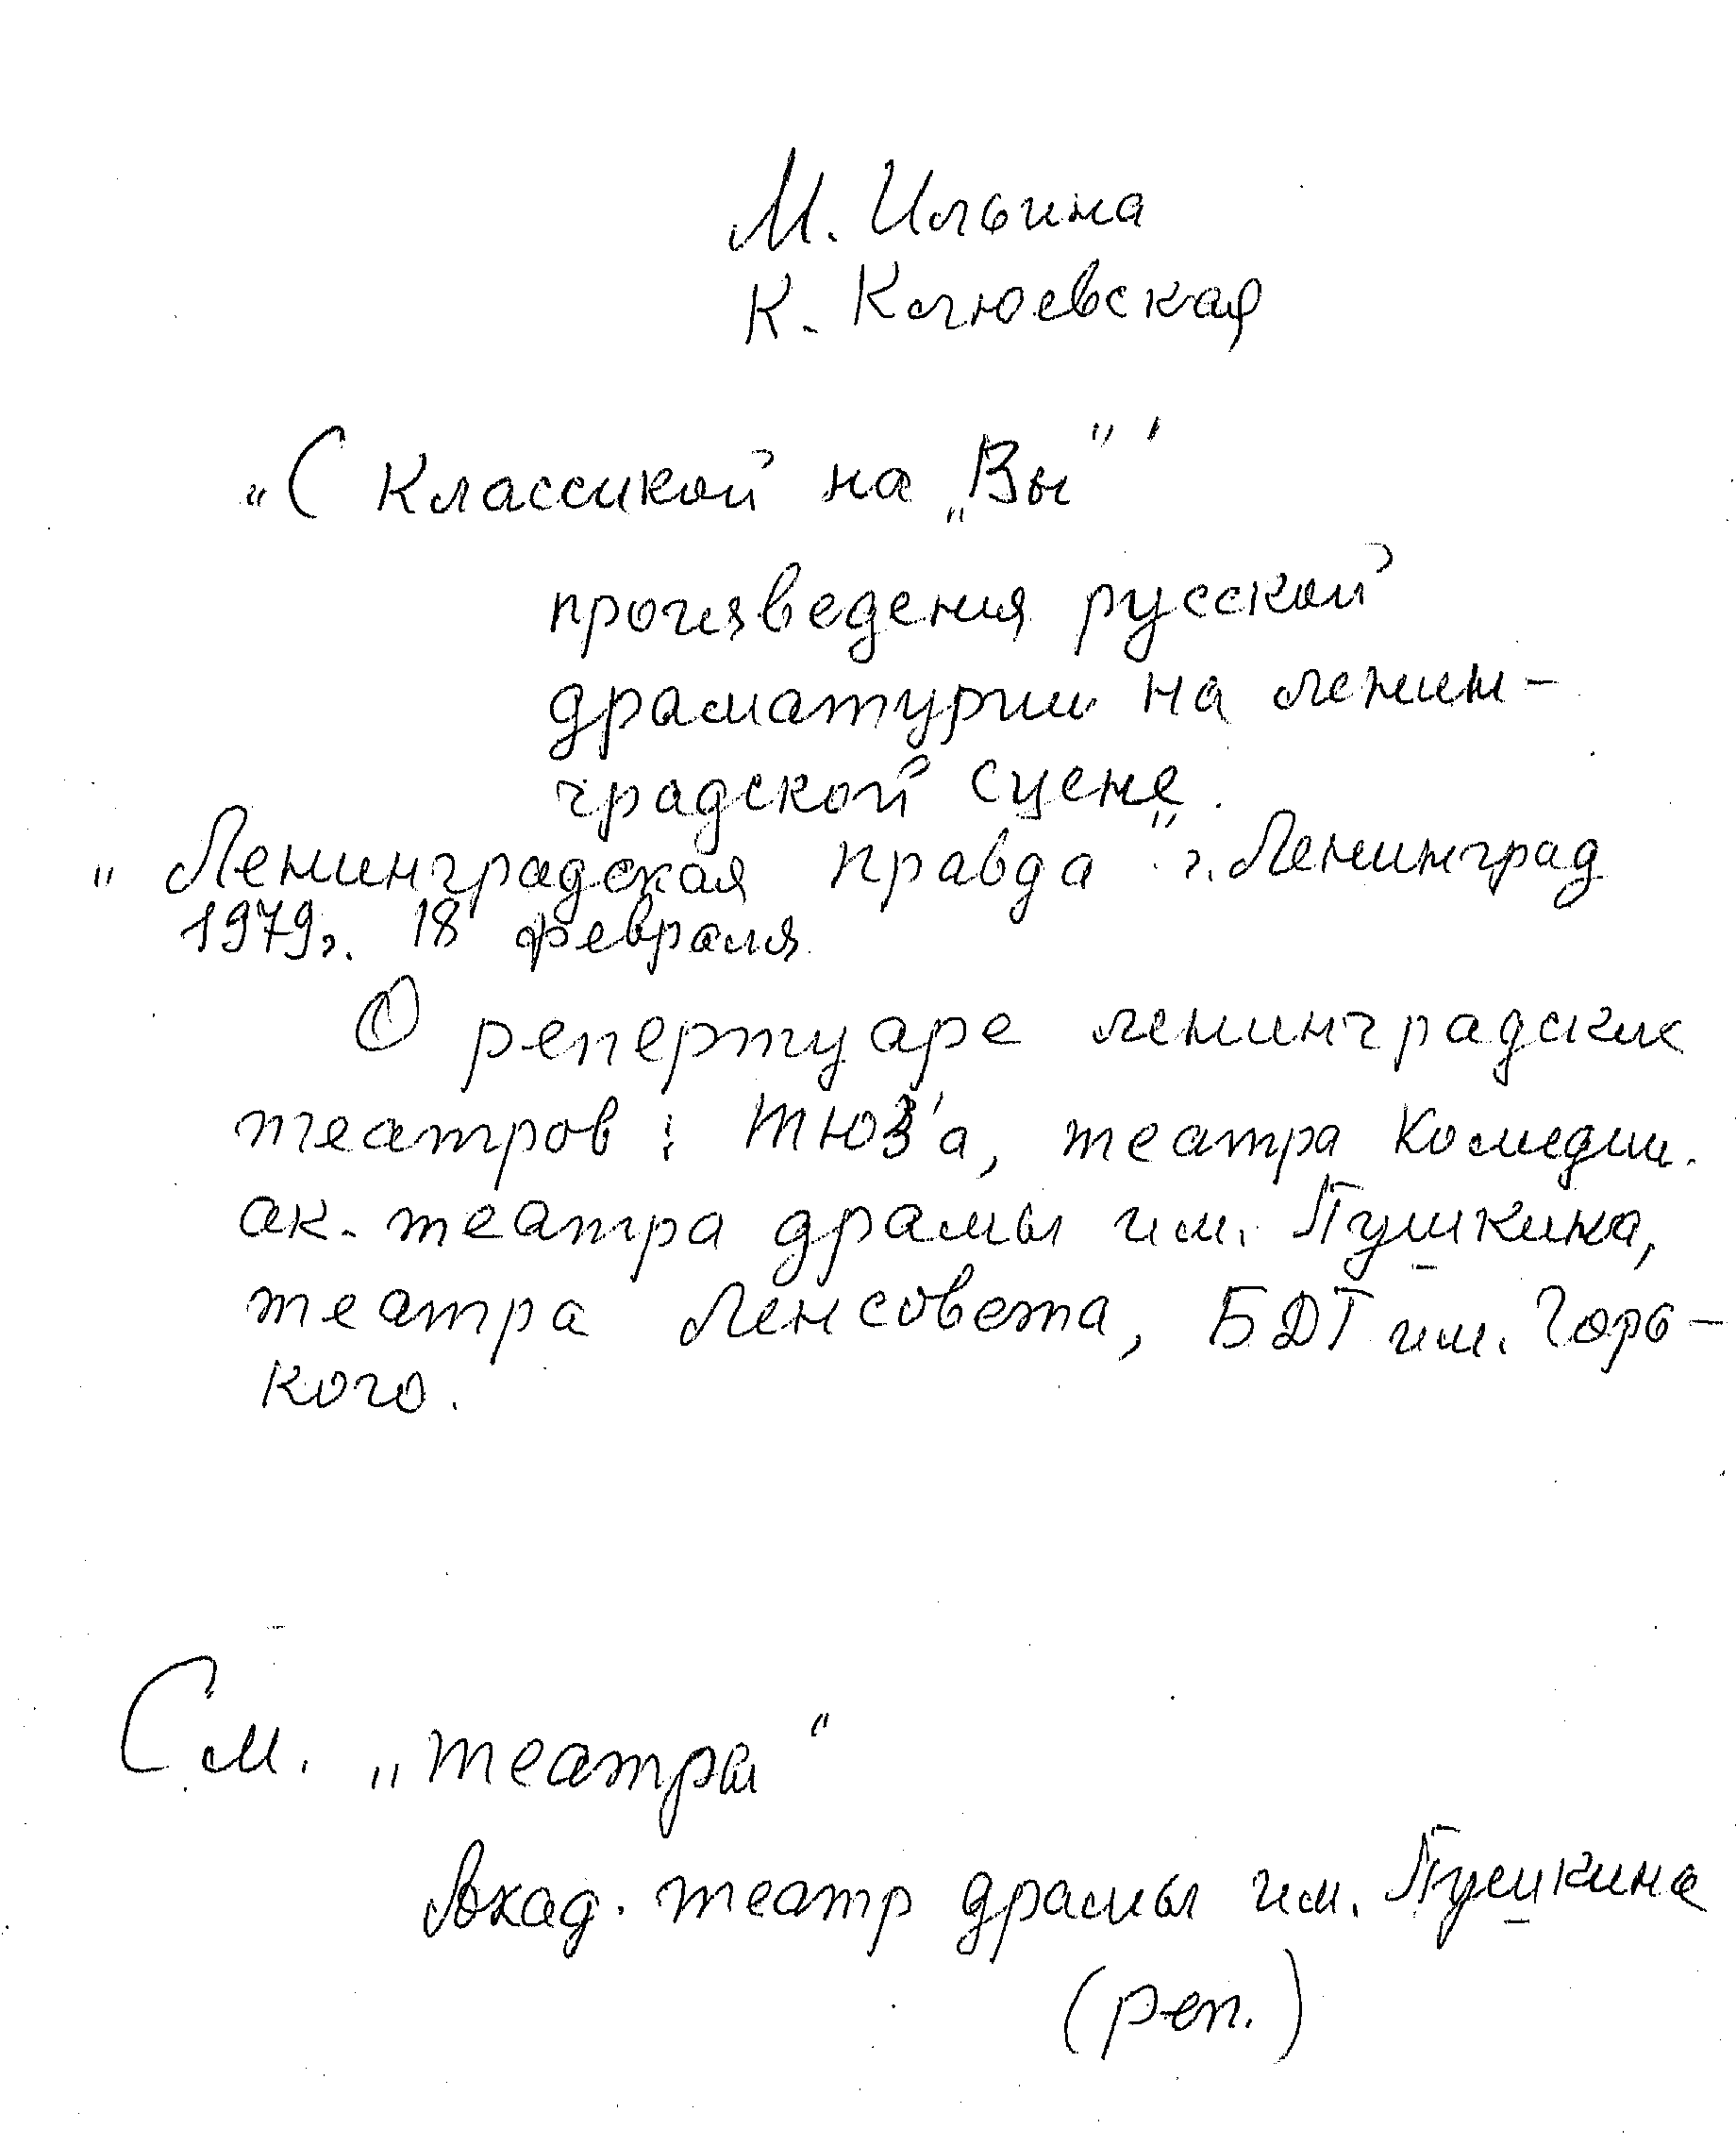 М. Ильина
К. Клюевская
„С Классикой на „Вы" '
произведения русской
драматургии на ленин-
градской сцене.
„Ленинградская правда" г. Ленинград
1979г. 18 февраля
О репертуаре ленинградских
театров: ТЮЗ'а, театра Комедии.
ак. театра драмы им. Пушкина,
театра Ленсовета, БДТ им. Горь-
кого.
См. „театры"
Акад. театр драмы им. Пушкина
(реп.)